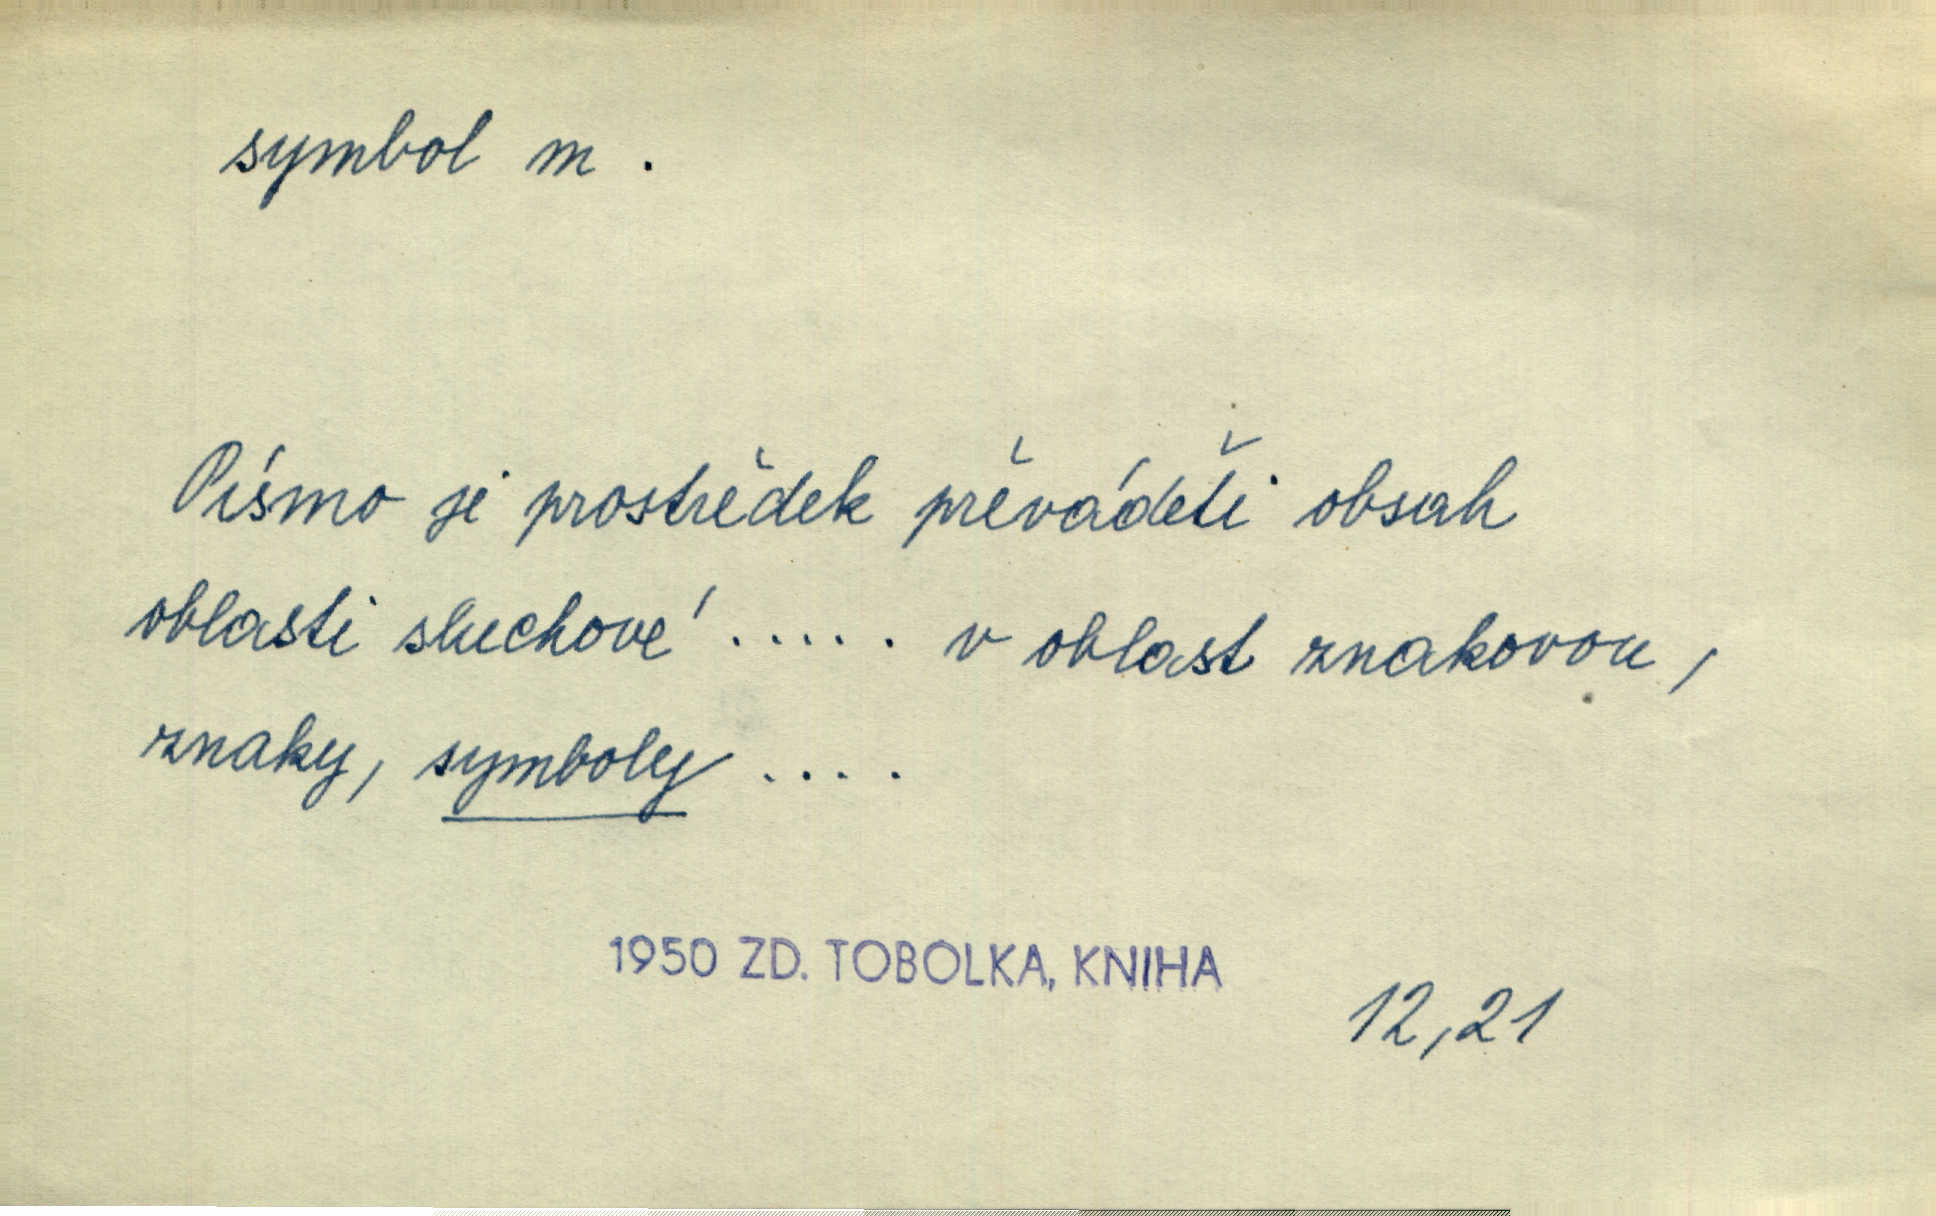 symbol m.
Písmo je prostředek převáděti obsah
oblasti sluchové ..... v oblast znakovou,
znaky, symboly ....
1950 ZD. TOBOLKA, KNIHA
12,21